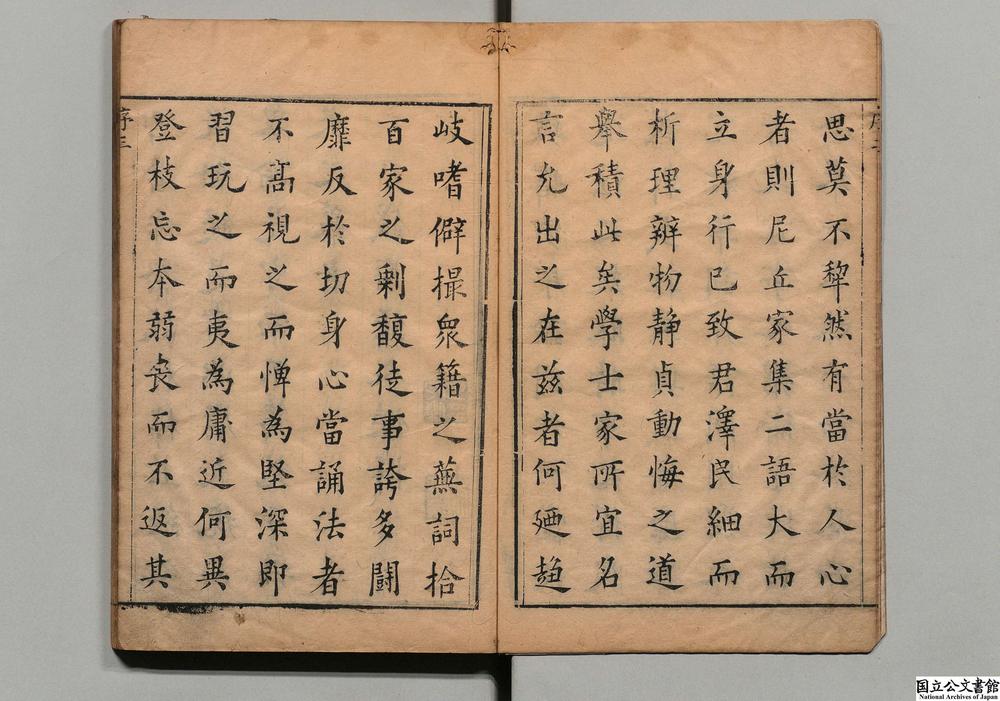 思莫不犂然有當於人心
者則尼丘家集二語大而
立身行已致君澤民細而
析理辨物静貞動悔之道
舉積此矣學士家所宜名
言允出之在兹者何廼趋
岐嗜僻撮衆籍之蕪詞拾
百家之剩馥徒事誇多鬪
靡反於切身心當誦法者
不髙視之而憚為堅深即
習玩之而夷為庸近何異
登枝忘本弱喪而不返其
序三
国立公文書館
National Archives of Japan